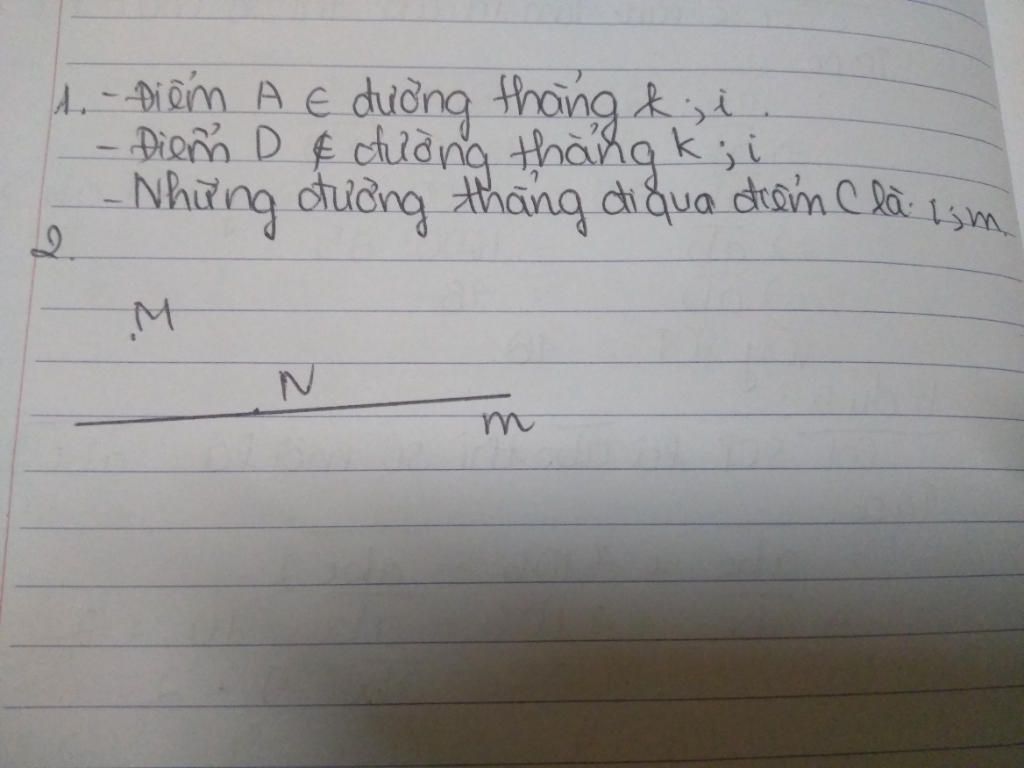 1. - Điểm A ∈ đường thẳng k ; i .
- Điểm D ∉ đường thẳng k ; i
- Những đường thẳng đi qua điểm C là: i ; m.
2.
M
N
m